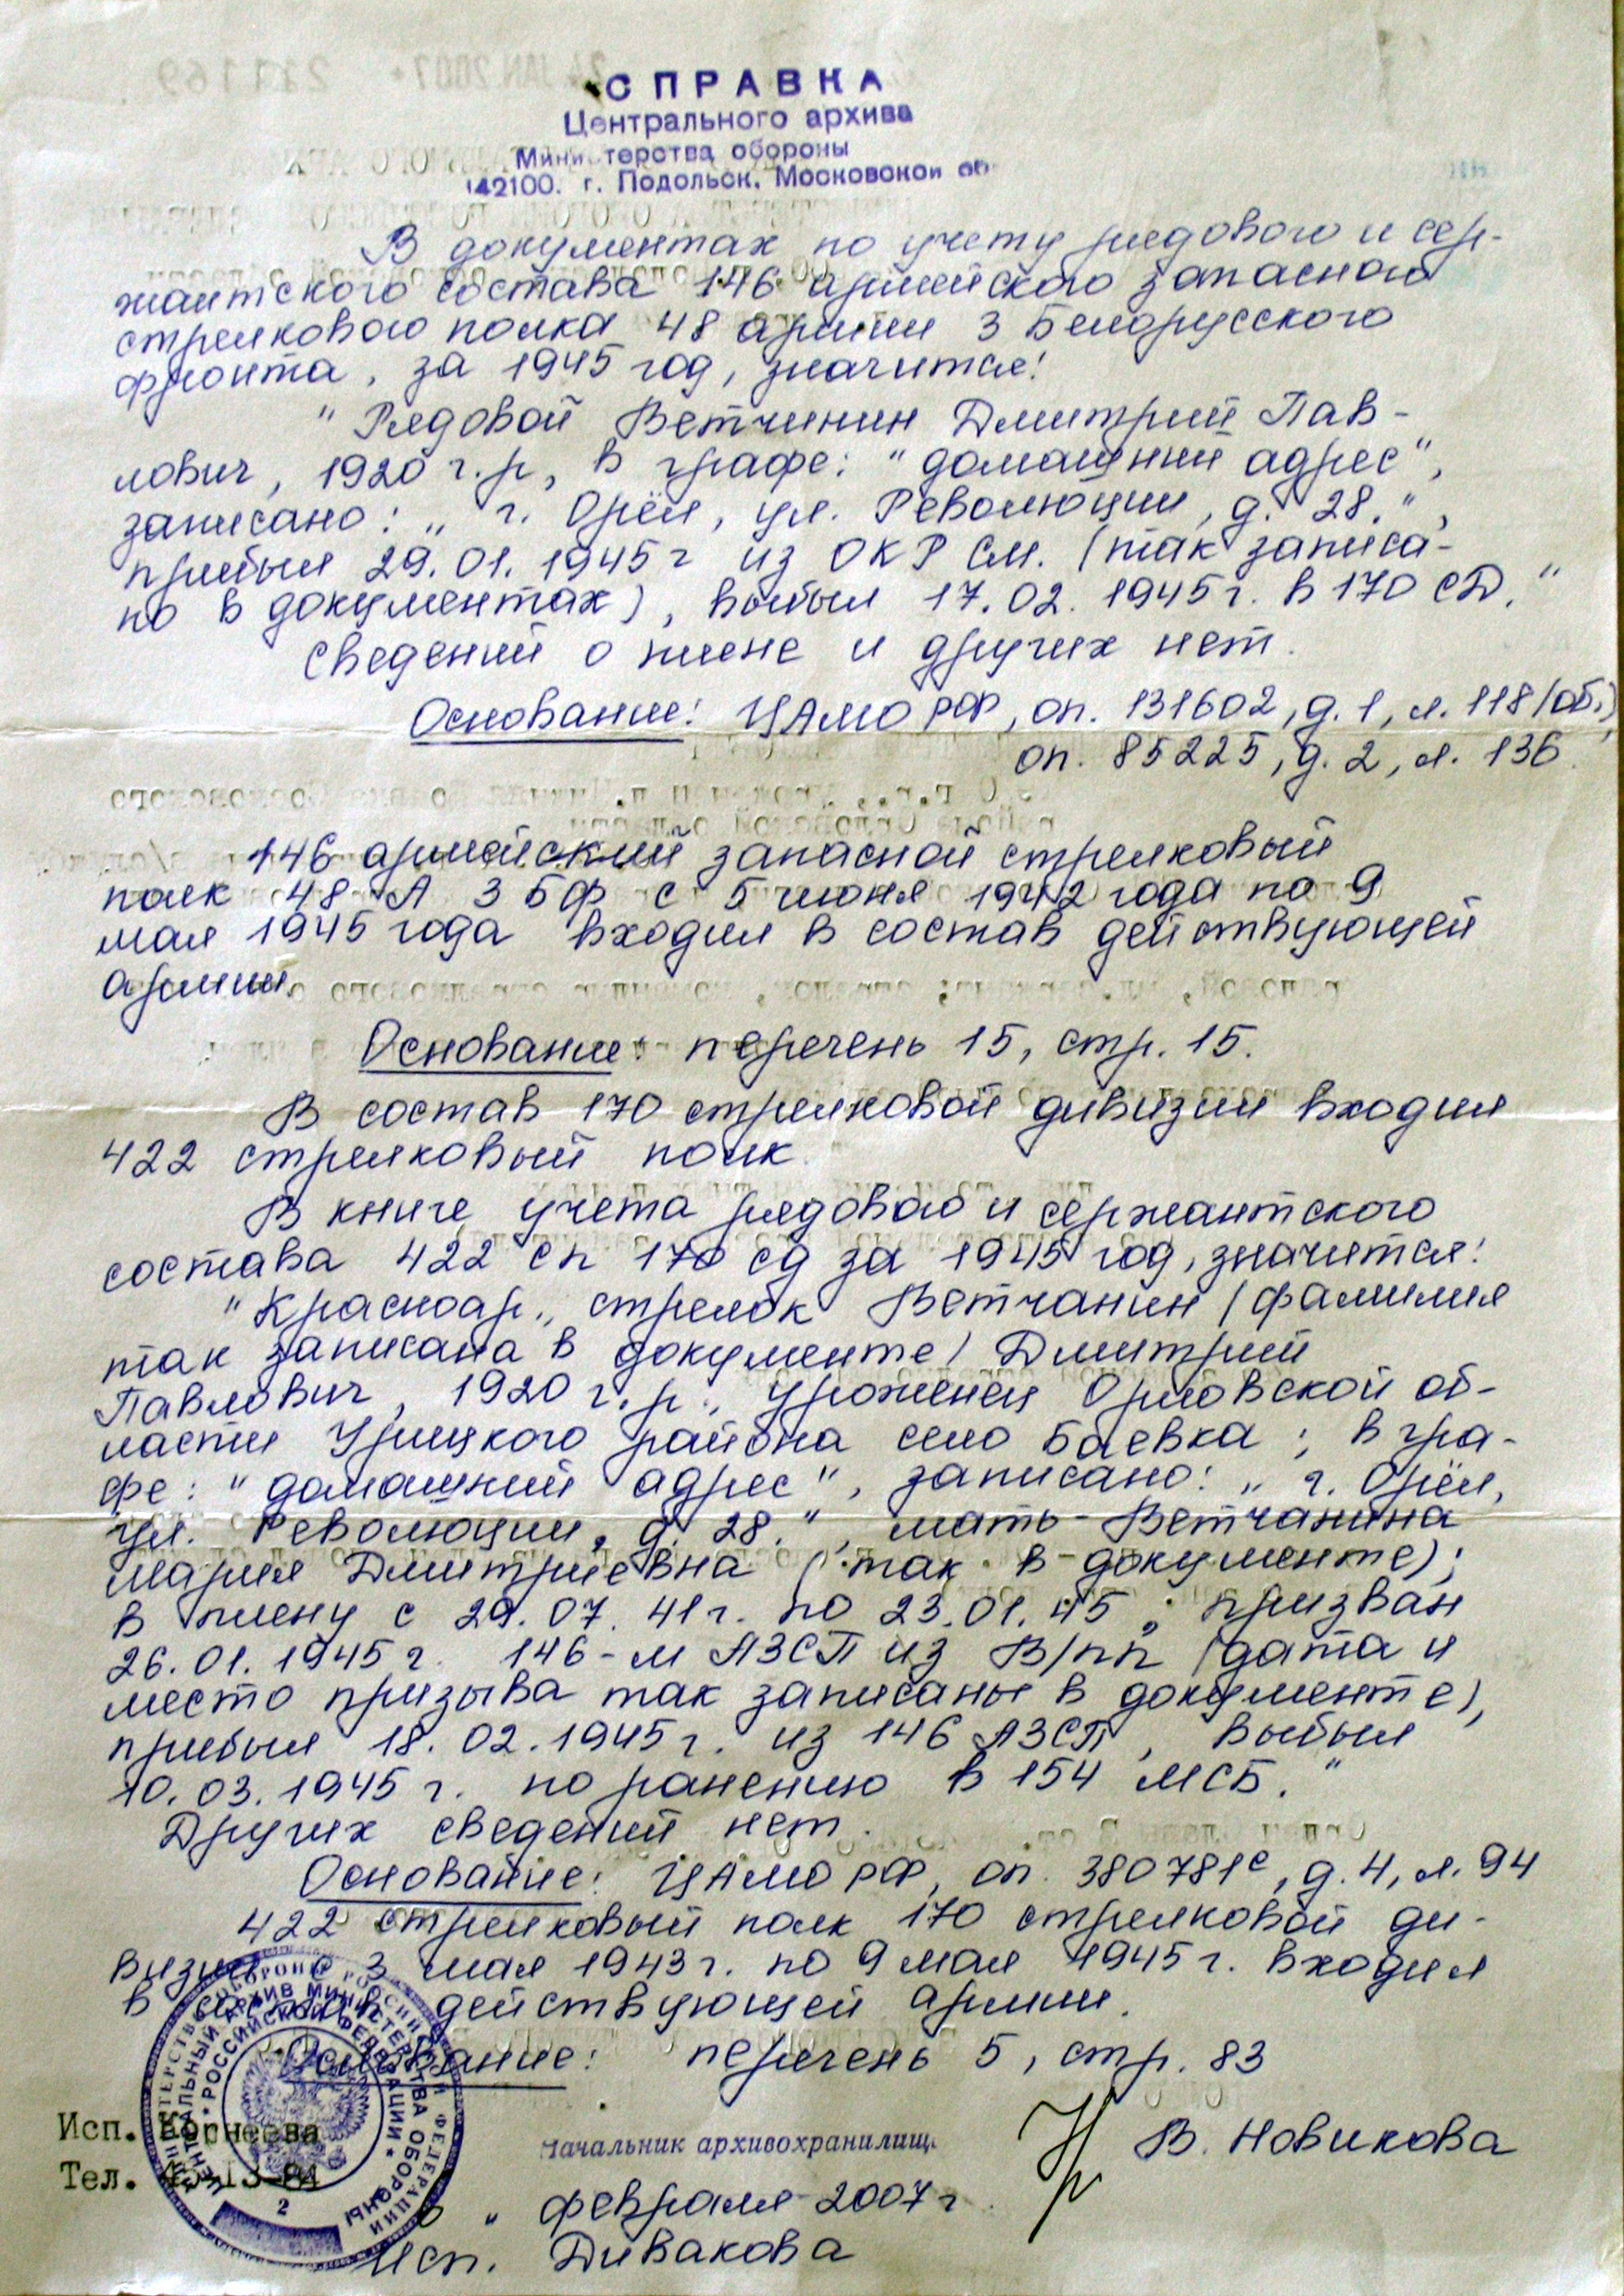 СПРАВКА
Центрального архива
Министерства обороны
142100. г. Подольск. Московской об
В документах по учету рядового и сер-
жантского состава 146 армейского запасного
стрелкового полка 48 армии 3 Белорусского
фронта, за 1945 год, значится:
"Рядовой Ветчинин Дмитрий Пав-
лович, 1920 г.р, в графе: "домашний адрес",
записано: „г. Орёл, ул. Революции, д. 28.",
прибыл 29.01.1945г из ОКР См. (так записа-
но в документах), выбыл 17.02.1945г. в 170 СД."
Сведений о плене и других нет.
Основание: ЦАМО РФ, оп. 131602, д.1, л.118/об.,
оп. 85225, д.2, л. 136.
146 армейский запасной стрелковый
полк 48 А 3 БФ с 5 июня 1942 года по 9
мая 1945 года входил в состав действующей
армии.
Основание: перечень 15, стр. 15.
В состав 170 стрелковой дивизии входил
422 стрелковый полк.
В книге учета рядового и сержантского
состава 422 сп 170 сд за 1945 год, значится:
"Красноар., стрелок Ветчанин (фамилия
так записана в документе) Дмитрий
Павлович, 1920 г.р., уроженец Орловской об-
ласти Урицкого района село Баевка; в гра-
фе: "домашний адрес", записано: „г. Орёл,
ул. Революции, д. 28.", мать-Ветчанина
Мария Дмитриевна (так в документе);
в плену с 29.07.41г. по 23.01.45; призван
26.01.1945г. 146-м АЗСП из В/пп (дата и
место призыва так записаны в документе),
прибыл 18.02.1945г. из 146 АЗСП, выбыл
10.03.1945г. по ранению в 154 МСБ."
Других сведений нет.
Основание: ЦАМО РФ, оп. 380781с, д.4, л.94
422 стрелковый полк 170 стрелковой ди-
визии с 3 мая 1943г. по 9 мая 1945г. входил
в состав действующей армии.
Основание: перечень 5, стр. 83
Исп. Корнеева
Тел. 13-84
Начальник архивохранилища
В. Новикова
„ февраля 2007г.
Исп. Дивакова
МИНИСТЕРСТВО ОБОРОНЫ РОССИЙСКОЙ ФЕДЕРАЦИИ
ЦЕНТРАЛЬНЫЙ АРХИВ МИНИСТЕРСТВА ОБОРОНЫ
* РОССИЙСКОЙ ФЕДЕРАЦИИ *
2